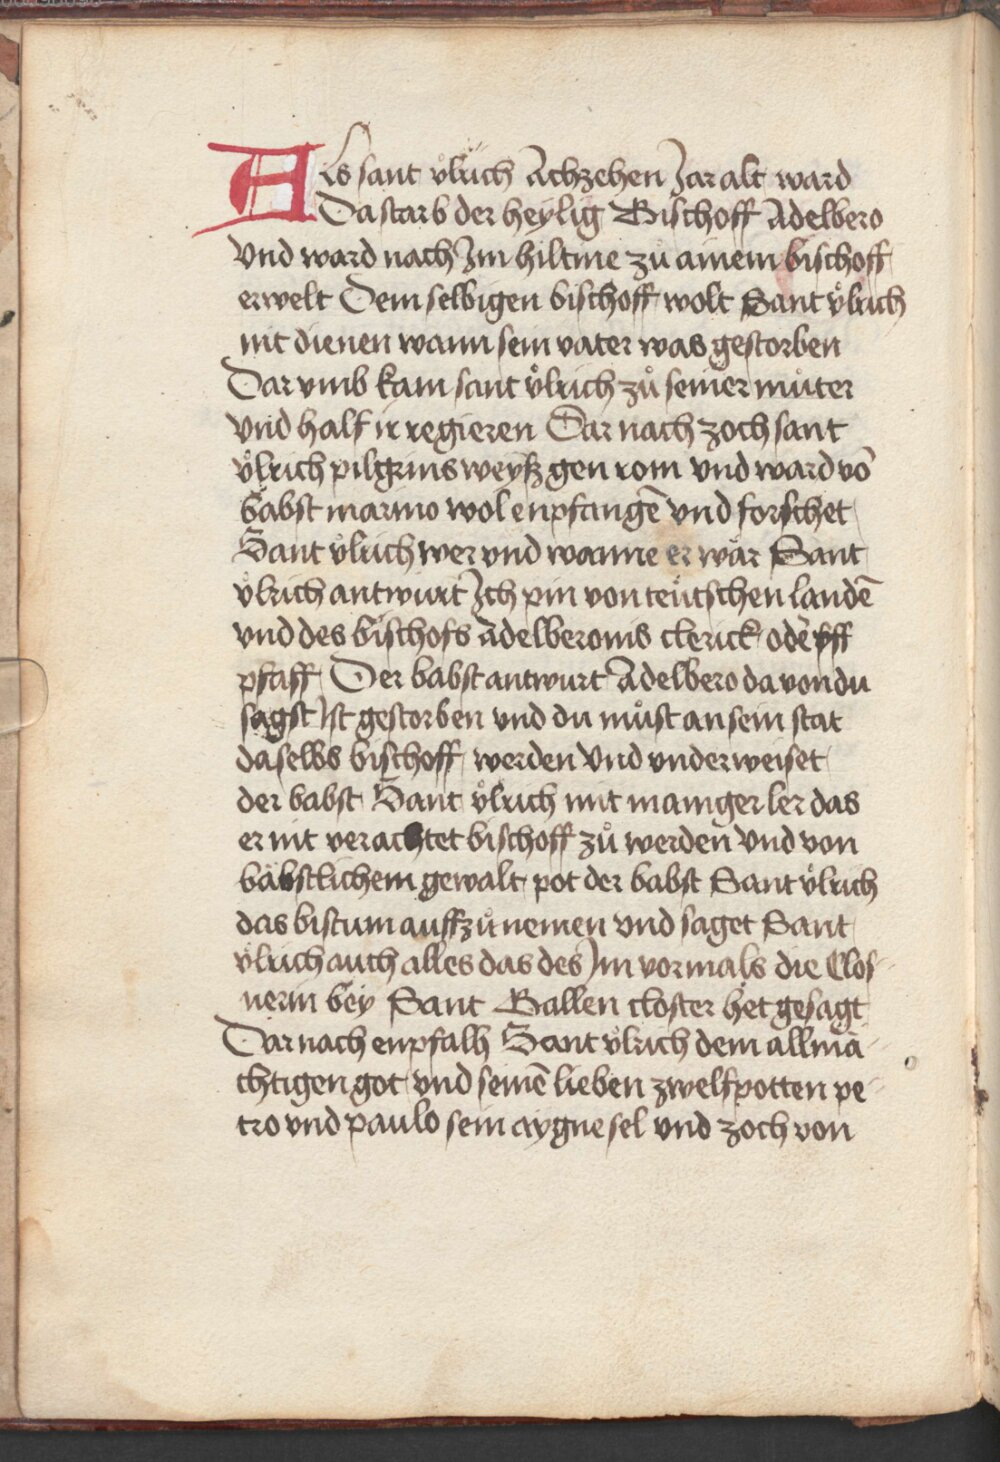 Als sant vͦlrich Achzehen Jar alt ward
Da starb der heylig Bischoff Adelbero
vnd ward nach Im hiltine zuͦ ainem bischoff
erwelt Dem selbigen bischoff wolt Sant vͦlrich
nit dienen wann sein vater was gestorben
Dar vmb kam sant vͦlrich zuͦ seiner muͦter
vnd half ir regieren Dar nach zoch sant
vͦlrich pilgrins weyß gen rom vnd ward vō
babst marino wol enpfangē vnd forschet
Sant vͦlrich wer vnd wanne er waͤr Sant
vͦlrich antwurt Ich pin von teuͤtschen landē
vnd des bischofs Adelberonis clerick oder pff
pfaff Der babst antwurt Adelbero da von du
sagst Ist gestorben vnd du muͦst an sein stat
daselbs bischoff werden vnd vnderweiset
der babst Sant vͦlrich mit maniger ler das
er nit verachtet bischoff zuͦ werden vnd von
baͤbstlichem gewalt pot der babst Sant vͦlrich
das bistum auff zuͦ nemen vnd saget Sant
vͦlrich auch alles das des Im vormals die Clos-
nerin bey Sant Gallen closter het gesagt
Dar nach enpfalh Sant vͦlrich dem allmaͤ-
chtigen got vnd seinē lieben zwelfpotten pe-
tro vnd paulo sein aygne sel vnd zoch von